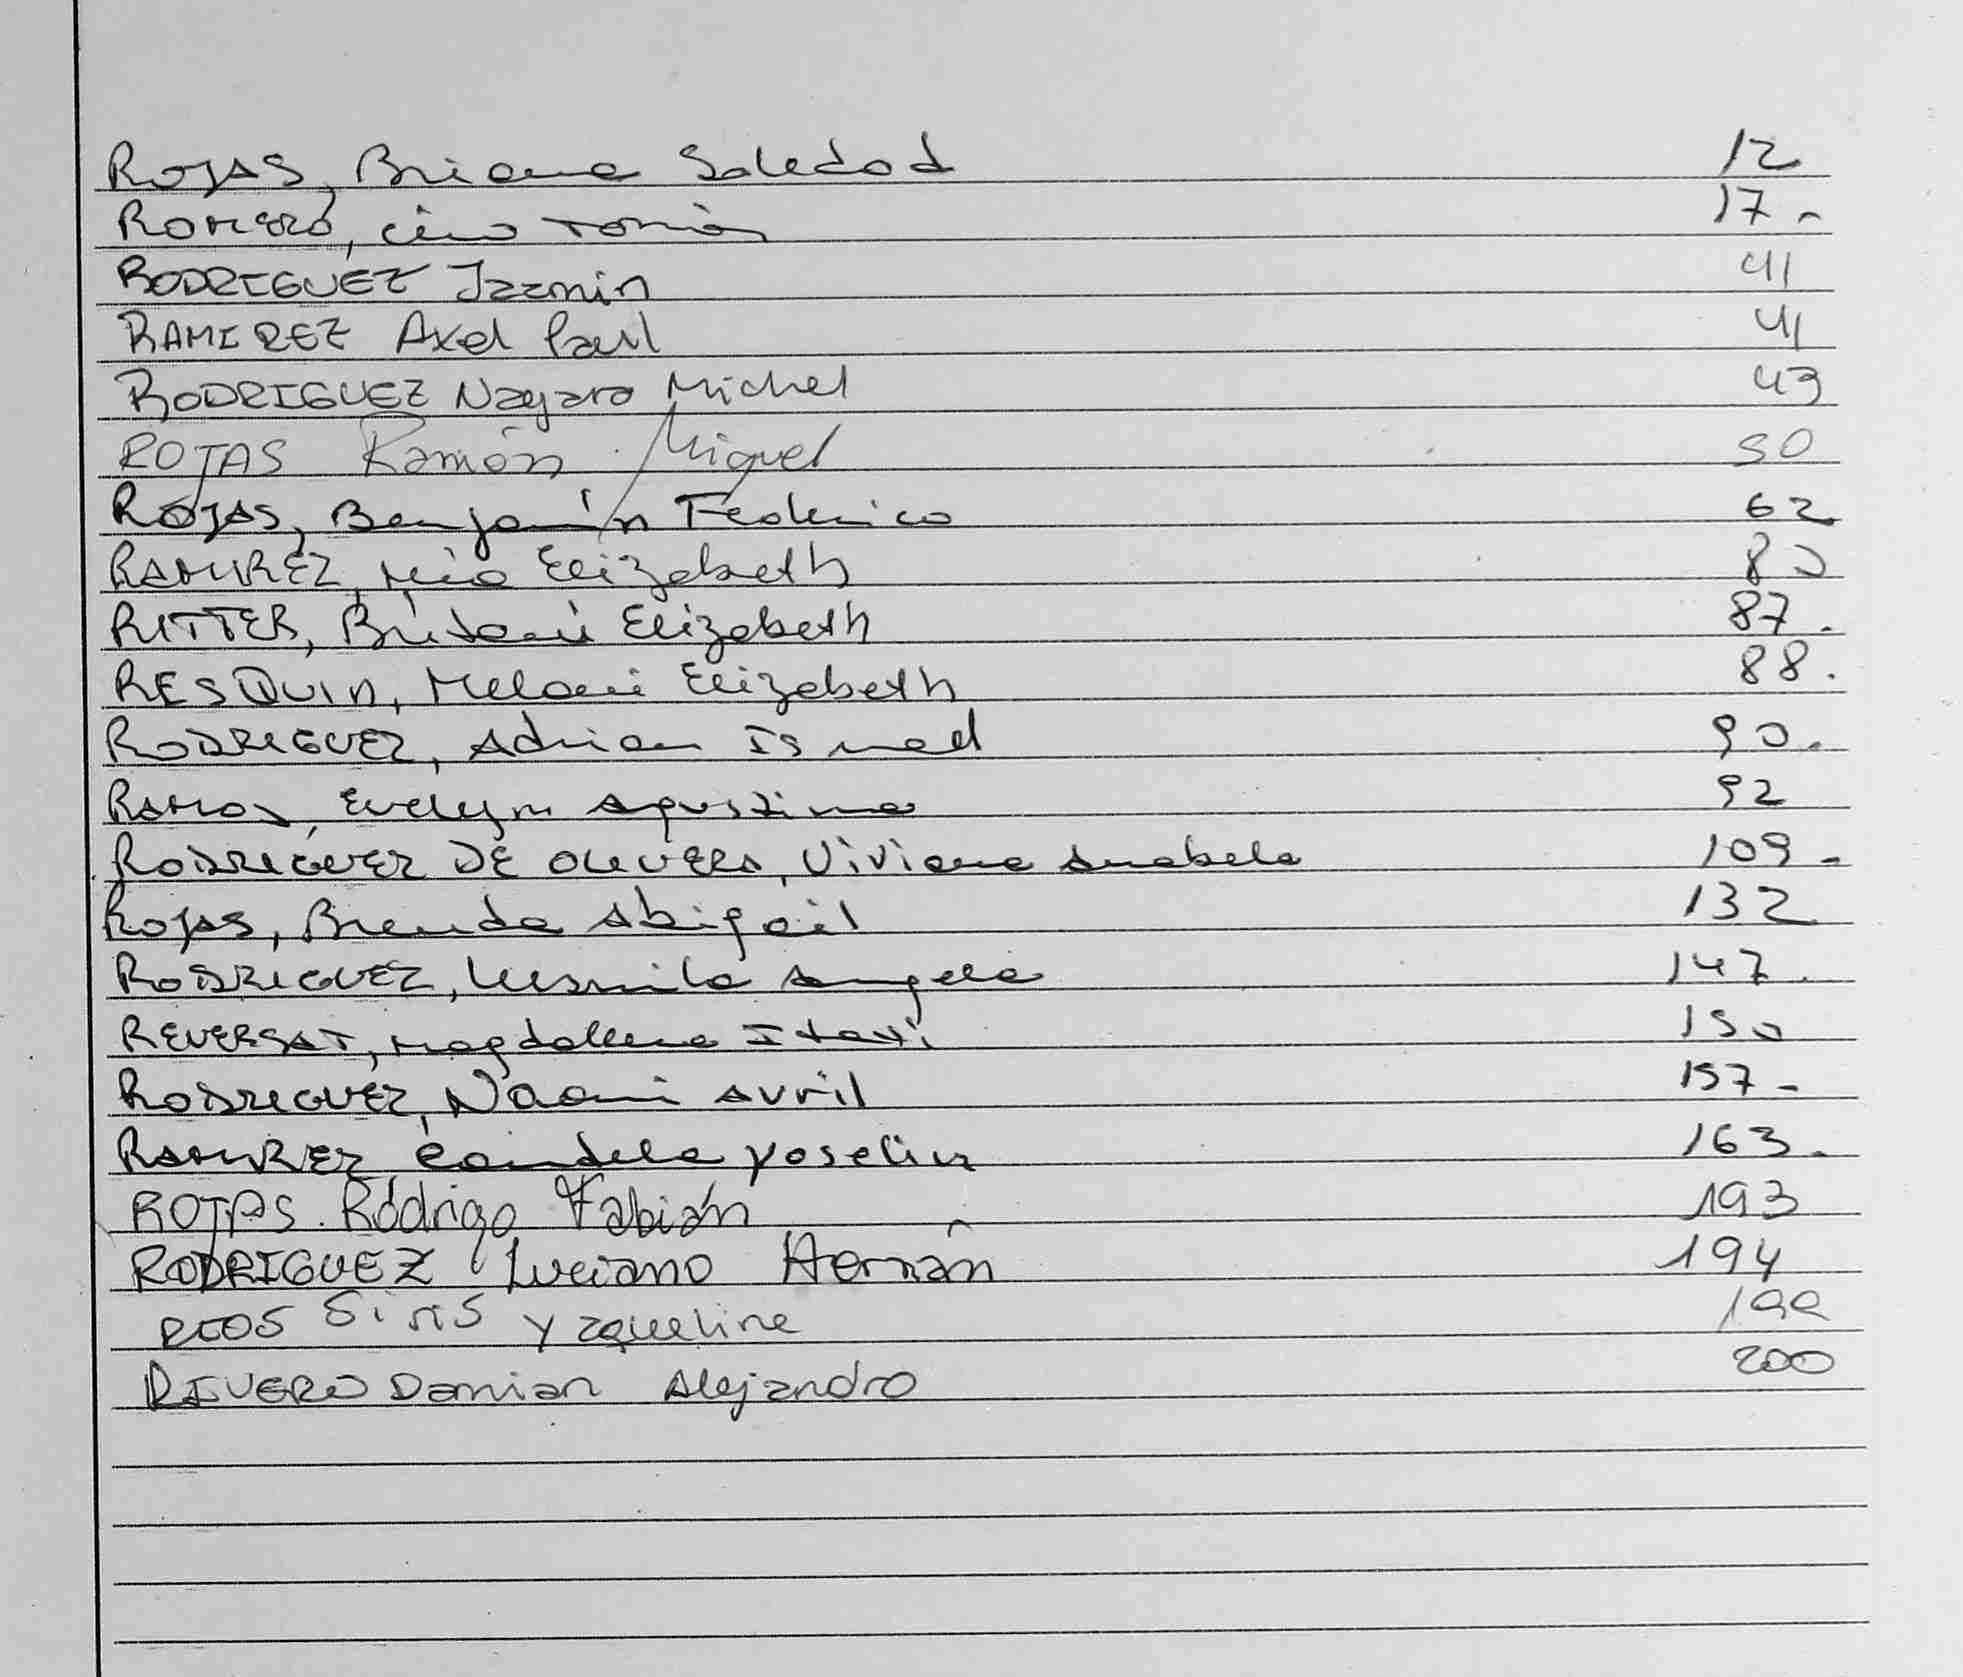 ROJAS, Briana Soledad 12
ROMERO, Ciro Tomás 17.-
RODRIGUEZ Jazmin 41
RAMIREZ Axel Paul 41
RODRIGUEZ Nayara Michel 43
ROJAS Ramón Miguel 50
ROJAS, Benjamín Federico 62
RAMIREZ, Mía Elizabeth 80
RITTER, Britani Elizabeth 87.
RESQUIN, Melani Elizabeth 88.
RODRIGUEZ, Adrian Ismael 90.
RAMOS, Evelyn Agustina 92
RODRIGUEZ DE OLIVERA, Viviana Anabela 109.-
ROJAS, Brenda Abigail 132
RODRIGUEZ, Lusmila Angela 147.
REVERSAT, Magdalena Itatí 150
RODRIGUEZ, Naomi Avril 157.-
RAMIREZ Candela Yoselin 163.
ROJAS Rodrigo Fabián 193
RODRIGUEZ Luciano Hernán 194
RIOS Yaqueline 199
RIVERO Damian Alejandro 200